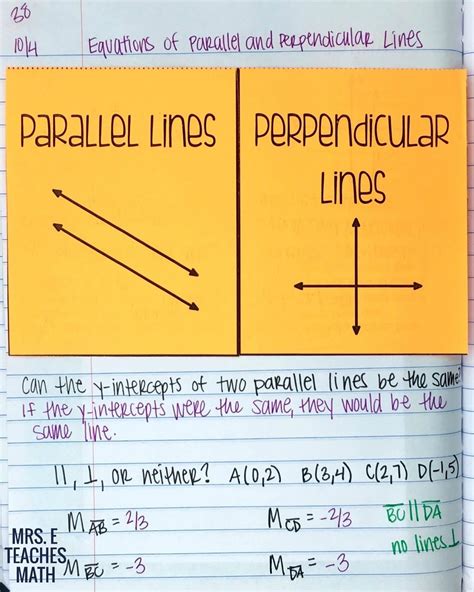 38
10/4 Equations of Parallel and Perpendicular Lines
PARALLEL LINES
PERPENDICULAR
LINES
Can the y-intercepts of two parallel lines be the same?
If the y-intercepts were the same, they would be the
same line.
||, ⊥, or neither? A(0,2) B(3,4) C(2,7) D(-1,5)
M_AB = 2/3 M_CD = -2/3 BC || DA
no lines ⊥
M_BC = -3 M_DA = -3
MRS. E
TEACHES
MATH